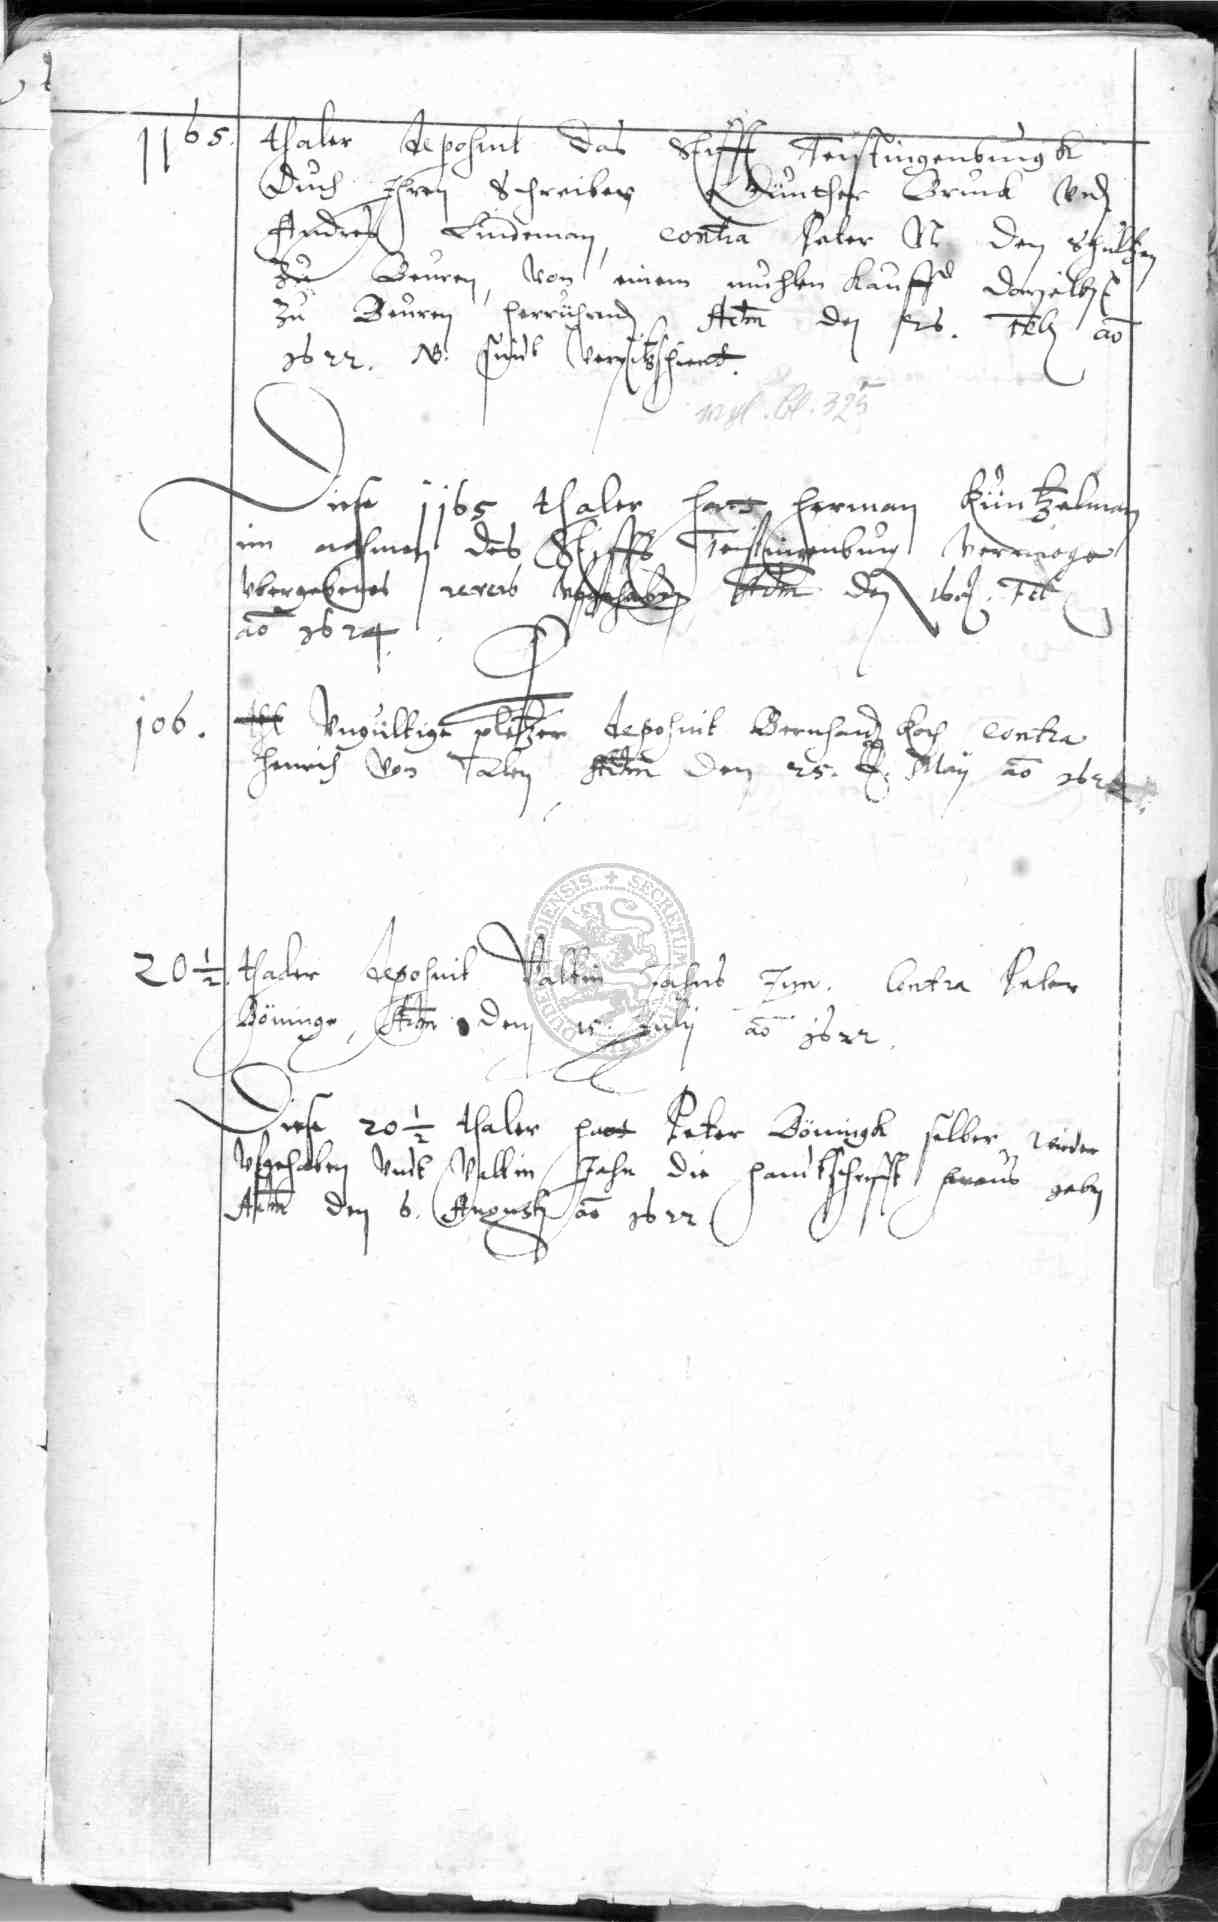 1165. thaler deposuit das Stifft Teistingenburgk
Durch Ihren Schreiber Günther Brunk Und
Andres Lindeman, contra Peter N den Schultzen
zu Beuren, von einem muhlen Kauff daselbst
zu Beuren herrührend, Actum den 26. Feb ao
1622. NB. sindt verpitzschiert.
vgl. Bl. 325
Diese 1165 thaler hatt Herman Küntzelman
im nahmen des Stiffts Teistingenburg vermoge
vbergebenes revers vffgehaben Actum den 16. Feb
ao 1624.
106. thl Vngültige pletzer deposuit Bernhard Koch contra
Henrich von Actum den 25. May ao 162
20 1/2. thaler deposuit Valtin Jahns Contra Peter
Böninge, Actum den 15. July ao 1622.
Diese 20 1/2 thaler hatt Peter Böningk selber wieder
Vfgehaben Vndt Valtin Jahn die handtschrifft heraus geben
Actum den 6. Augusti ao 1622
SECRETUM